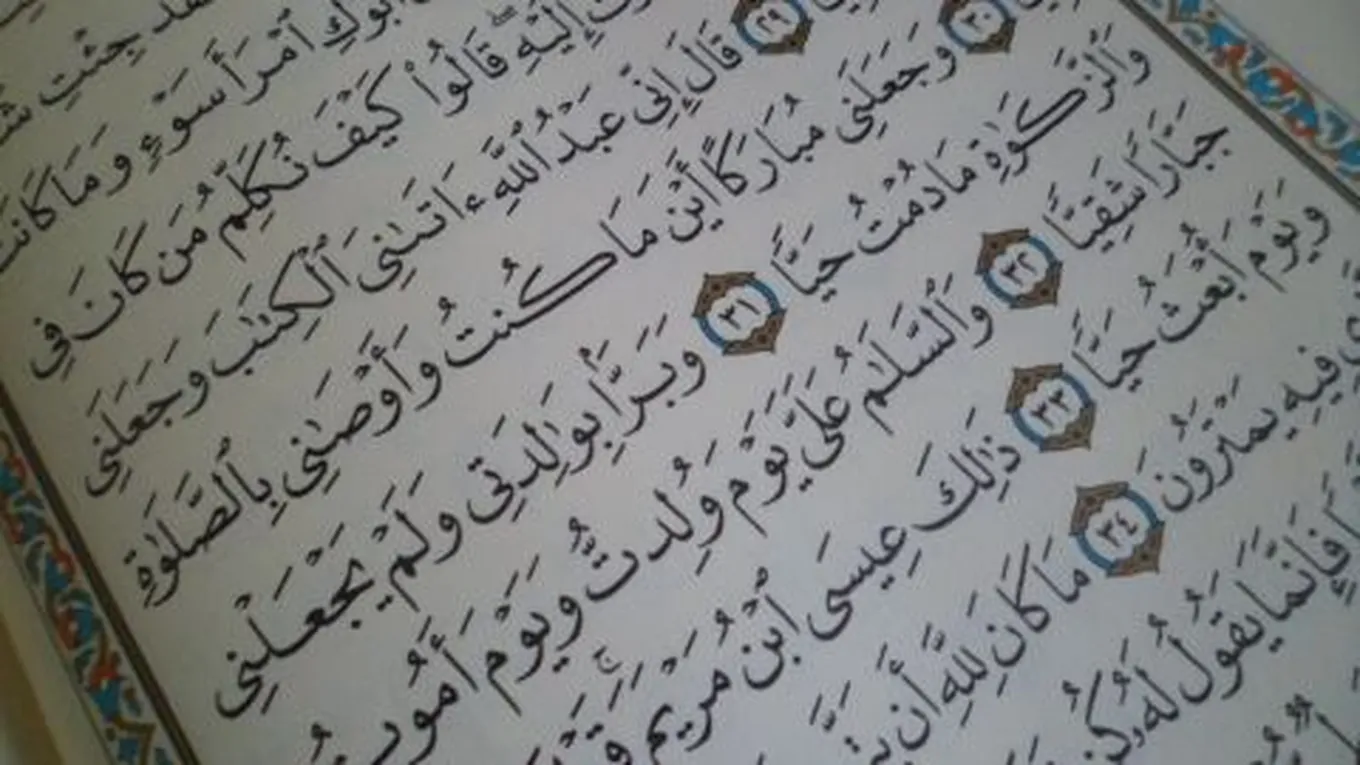 جِئْتِ
أَبُوكِ ٱمْرَأَ سَوْءٍ وَمَا كَانَتْ
إِلَيْهِ ۖ قَالُوا۟ كَيْفَ نُكَلِّمُ مَن كَانَ فِى
٢٩ قَالَ إِنِّى عَبْدُ ٱللَّهِ ءَاتَىٰنِىَ ٱلْكِتَٰبَ وَجَعَلَنِى
٣٠ وَجَعَلَنِى مُبَارَكًا أَيْنَ مَا كُنتُ وَأَوْصَٰنِى بِٱلصَّلَوٰةِ
وَٱلزَّكَوٰةِ مَا دُمْتُ حَيًّا ٣١ وَبَرًّۢا بِوَٰلِدَتِى وَلَمْ يَجْعَلْنِى
جَبَّارًا شَقِيًّا ٣٢ وَٱلسَّلَٰمُ عَلَىَّ يَوْمَ وُلِدتُّ وَيَوْمَ أَمُوتُ
وَيَوْمَ أُبْعَثُ حَيًّا ٣٣ ذَٰلِكَ عِيسَى ٱبْنُ مَرْيَمَ ۚ
فِيهِ يَمْتَرُونَ ٣٤ مَا كَانَ لِلَّهِ أَن
فَإِنَّمَا يَقُولُ لَهُۥ كُن